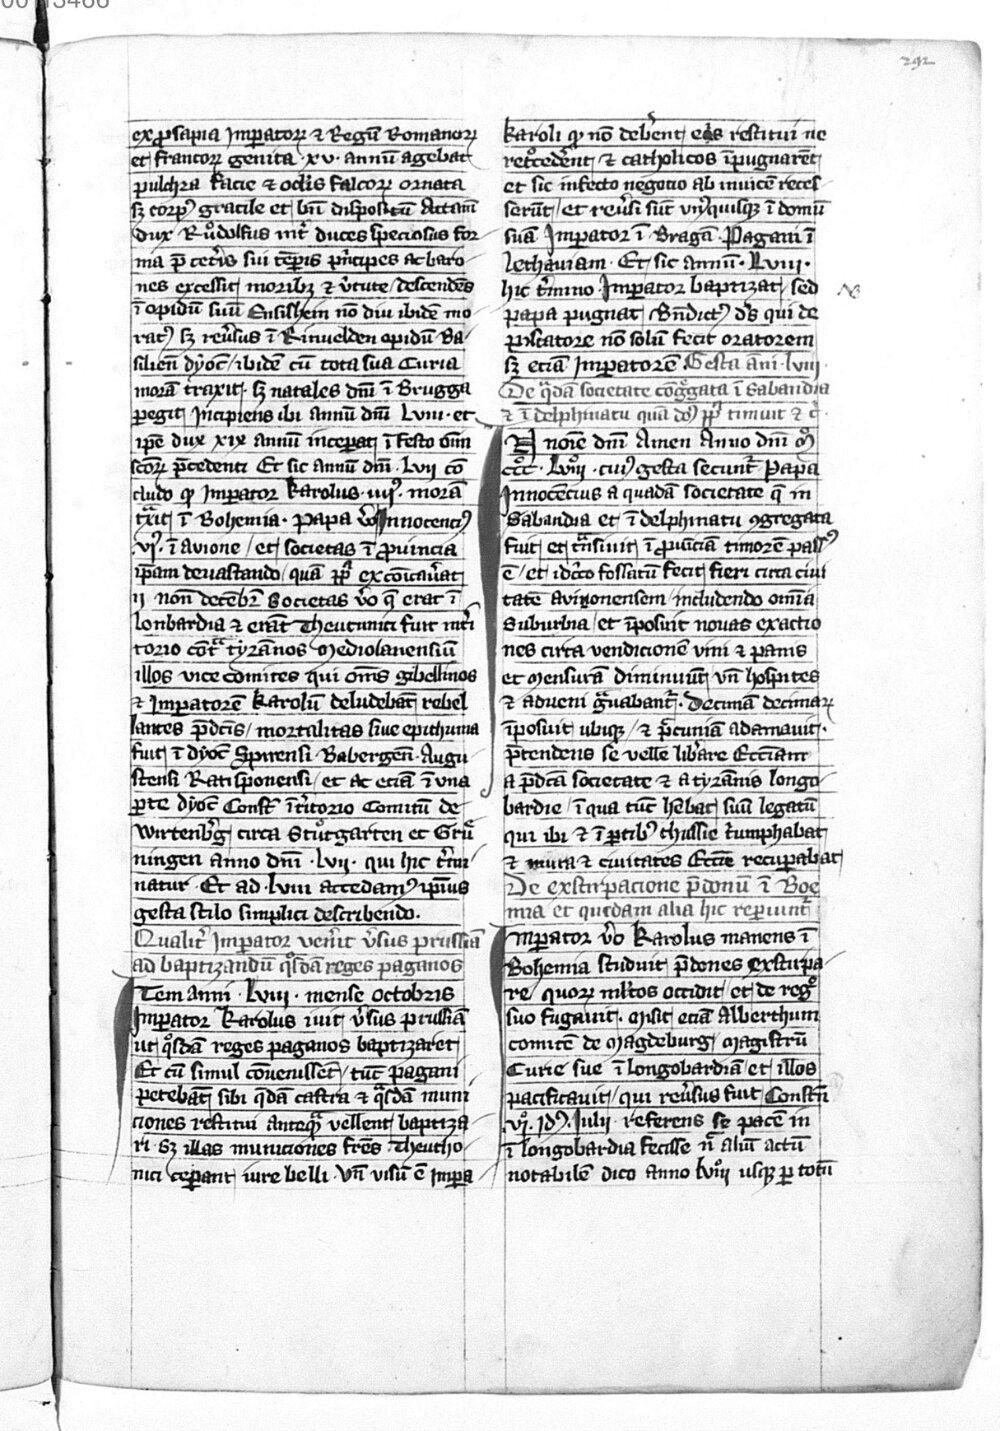 292
ex ꝓsapia Imꝑatoꝝ ⁊ Regū Romanoꝝ
et francoꝝ genita xv annū agebat
pulchra facie ⁊ oclis falcoꝝ ornata
sꝫ corpꝰ gracile et bn̄ dispositū Attam̄
dux Růdolfus int̄ duces speciosus for
ma p̄ cet̄is sui tēꝑis p̄ncipes ac baro
nes excessit moribꝫ ⁊ v̄tute / descendēs
ī opidū suū Ensishein nō diu ibidē mo
ratꝰ sꝫ reūsus ī Rinuelden opidū Ba
silien̄ dyoc̄ / ibidē cū tota sua Curia
morā traxit · sꝫ natales dm̄ ī Brugga
ꝑegit Incipiens ibi annū dm̄ Lviii · et
ip̄e dux xix annū inceꝑat ī festo om̄
scōꝝ p̄cedenti Et sic annū dm̄ · Lvii cō
cludo ꝙ Imꝑator Karolus · iiijꝰ · morā
t̄xit ī Bohemia · Papa v̄o Innocenciꝰ
vjꝰ · ī avione / et societas ī ꝓuincia
ip̄am deuastando / quā pp̄ excōicau̅at
ii non̄ decēbr̄ Societas v̄o q̄ erat ī
lonbardia ⁊ erāt Theutunici fuit int̄i
torio cōt̄ tyrānos Mediolanensiū
illos vice comites qui om̄s gibellinos
⁊ Imꝑatorē Karolū deludebāt rebel
lantes p̄dcīs / mortalitas siue epithimia
fuit ī dyoc̄ Spirensi Babergen̄ · Augu
stensi Ratisponensi / et ac eciā ī vna
ꝑte dyoc̄ Const̄ ī t̄ritorio Comitū de
Wirtenb̄g circa Stůtgarten et Grů
ningen anno dm̄ · Lvii · qui hic t̄mi
natur · Et ad · Lviii accedamꝰ ip̄ius
gesta stilo simplici describendo ·
Qualit̄ Imꝑator ven̄it v̄sus prussiā
ad baptizandū q̊sdā reges paganos
Item anni · Lviii · mense octobris
Imꝑator Karolus iuit v̄sus prussiā
ut q̊sdā reges paganos baptizaret
Et cū simul cōuenissēt / tūc pagani
petebāt sibi q̄dā castra ⁊ q̄sdā muni
ciones restitui anteq̄ vellent baptiza
ri · sꝫ illas municiones fr̄es Theutho
nici ceꝑant iure belli · Vn̄ visū ē Imꝑa
Karoli ꝙ nō deb̄ent eis restitui ne
ret̊cedēnt ⁊ catholicos īpugnarēt
et sic infecto negocio ab inuicē reces
serūt / et reūsi sūt vnꝰquisqꝫ ī domū
suā Imꝑator ī Bragā · Pagani ī
Lethauiam · Et sic annū · Lviii ·
hic t̄mino · Imꝑator baptizat / sed
papa pugnat · Bn̄dictꝰ d̄s qui de
piscatore nō solū fecit oratorem
sꝫ eciā Imꝑatorē Gesta ani · lviii ·
De q̄dā societate cōg̊gata ī Sabaudia
⁊ ī delphinatu quā dn̄s pp̄ timuit ⁊ c̄
In noīe dm̄ Amen Anno dm̄ M̊
ccc̊ · Lviij̊ · cuiꝰ gesta secunt̄ Papa
Innocencius a quadā societate q̄ in
Sabaudia et ī delphinatu ꝯgregata
fuit / et t̄nsiuit ī ꝓuīciā timorē passꝰ
ē / et id̊co fossatū fecit fieri circa ciui
tatē avinonensem / includendo omīa
suburbia / et īposuit nouas exactio
nes circa vendicionē vini ⁊ panis
et Mensurā diminuiūt vn̄ hospites
⁊ adueni g̊uabant̄ · Decimā decimaꝝ
īposuit ubiqꝫ / ⁊ p̄cuniā adamauit ·
p̄tendens se velle lib̄are Ecc̄iam
a p̄dcā societate ⁊ a tyrānis longo
bardie / ī qua tūc hēbat suū legatū
qui ibi ⁊ ī ꝑtibꝰ thussie t̄umphabat
⁊ mura ⁊ ciuitates Ecc̄ie recuꝑabat
De exstirpacione p̄donū ī Boe
mia et quedam alia hic reꝑiunt̄
Imꝑator v̄o Karolus manens ī
Bohemia studuit p̄dones exstirpa
re quoꝝ m̄ltos occidit et de reg̊
suo fugauit · Misit eciā Alberthum
comitē de Magdeburg Magistrū
Curie sue ī longobardiā / et illos
pacificauit / qui reūsus fuit Constn̄
vj̊ · Idꝰ Iulii referens se pacē in
ī longobardia fecisse n̄ aliū actū
notabilē dico anno lviij̊ usqꝫ ꝑ totū